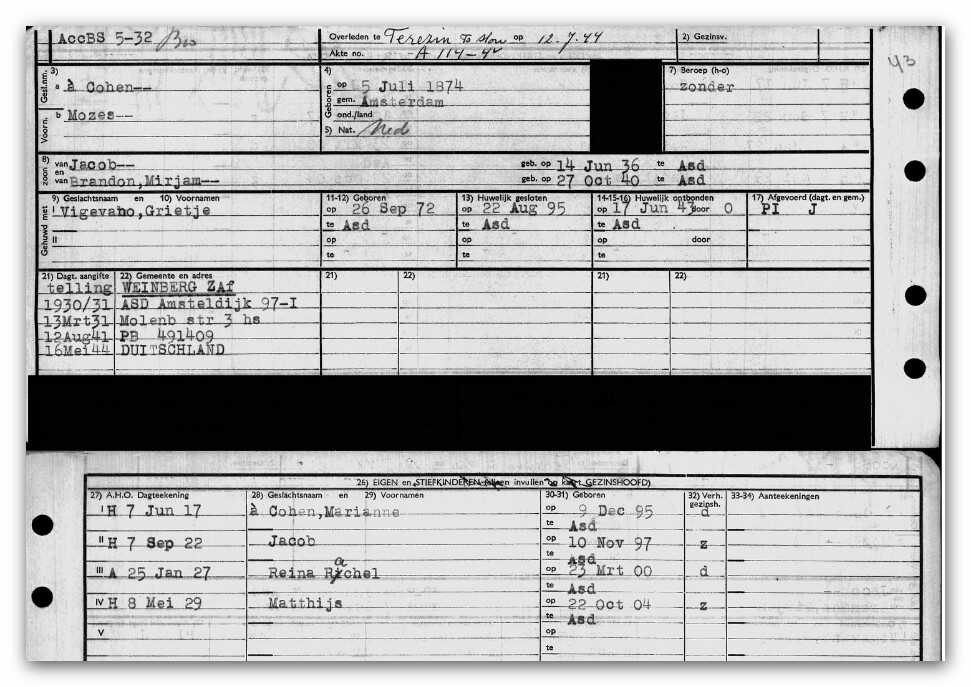 AccBS 5-32
Overleden te Terezin op 12.7.44
Akte no. -A 114-42
2) Gezinsv.
43
Gesl.nm.
3)
a à Cohen--
Voorn.
b Mozes--
4)
Geboren
op 5 Juli 1874
gem. Amsterdam
ond./land
5) Nat. Ned
7) Beroep (h-o)
zonder
8)
zoon
van Jacob-- geb. op 14 Jun 36 te Asd
en
van Brandon,Mirjam-- geb. op 27 Oct 40 te Asd
Gehuwd met
9) Geslachtsnaam en 10) Voornamen
I Vigevano,Grietje
II
11-12) Geboren
op 26 Sep 72
te Asd
op
te
13) Huwelijk gesloten
op 22 Aug 95
te Asd
op
te
14-15-16) Huwelijk ontbonden
op 17 Jun 43 door O
te Asd
op door
te
17) Afgevoerd (dagt. en gem.)
PI J
21) Dagt. aangifte 22) Gemeente en adres
telling WEINBERG ZAf
1930/31 ASD Amsteldijk 97-I
13Mrt31 Molenb str 3 hs
12Aug41 PB 491409
16Mei44 DUITSCHLAND
21) 22)
21) 22)
26) EIGEN en STIEFKINDEREN (alleen invullen op kaart GEZINSHOOFD)
27) A.H.O. Dagteekening 28) Geslachtsnaam en 29) Voornamen 30-31) Geboren 32) Verh. gezinsh. 33-34) Aanteekeningen
I H 7 Jun 17 à Cohen,Marianne op 9 Dec 95 d
te Asd
II H 7 Sep 22 Jacob op 10 Nov 97 z
te Asd
III A 25 Jan 27 Reina Rachel op 23 Mrt 00 d
te Asd
IV H 8 Mei 29 Matthijs op 22 Oct 04 z
te Asd
V op
te